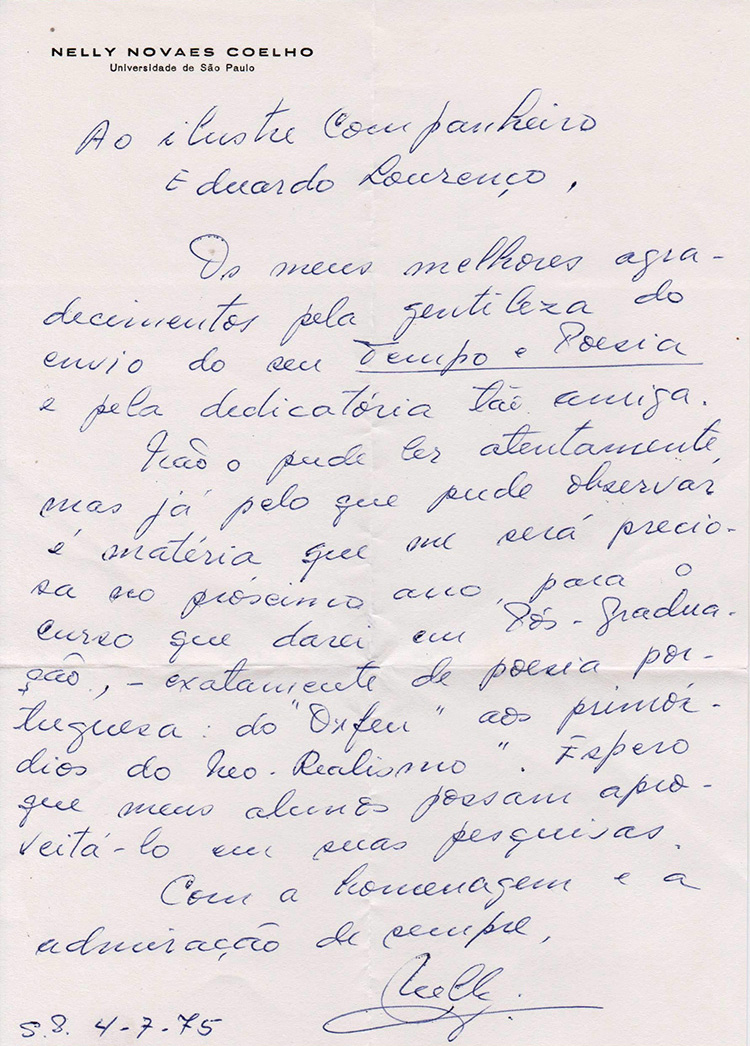 NELLY NOVAES COELHO
Universidade de São Paulo
Ao ilustre Companheiro
Eduardo Lourenço,
Os meus melhores agra-
decimentos pela gentileza do
envio do seu Tempo e Poesia
e pela dedicatória tão amiga.
Não o pude ler atentamente,
mas já pelo que pude observar
é matéria que me será precio-
sa no próximo ano, para o
curso que darei em Pós-Gradua-
ção, - exatamente de poesia por-
tuguesa: do "Orfeu" aos primór-
dios do Neo-Realismo". Espero
que meus alunos possam apro-
veitá-lo em suas pesquisas.
Com a homenagem e a
admiração de sempre,
Nelly.
S.P. 4-7-75